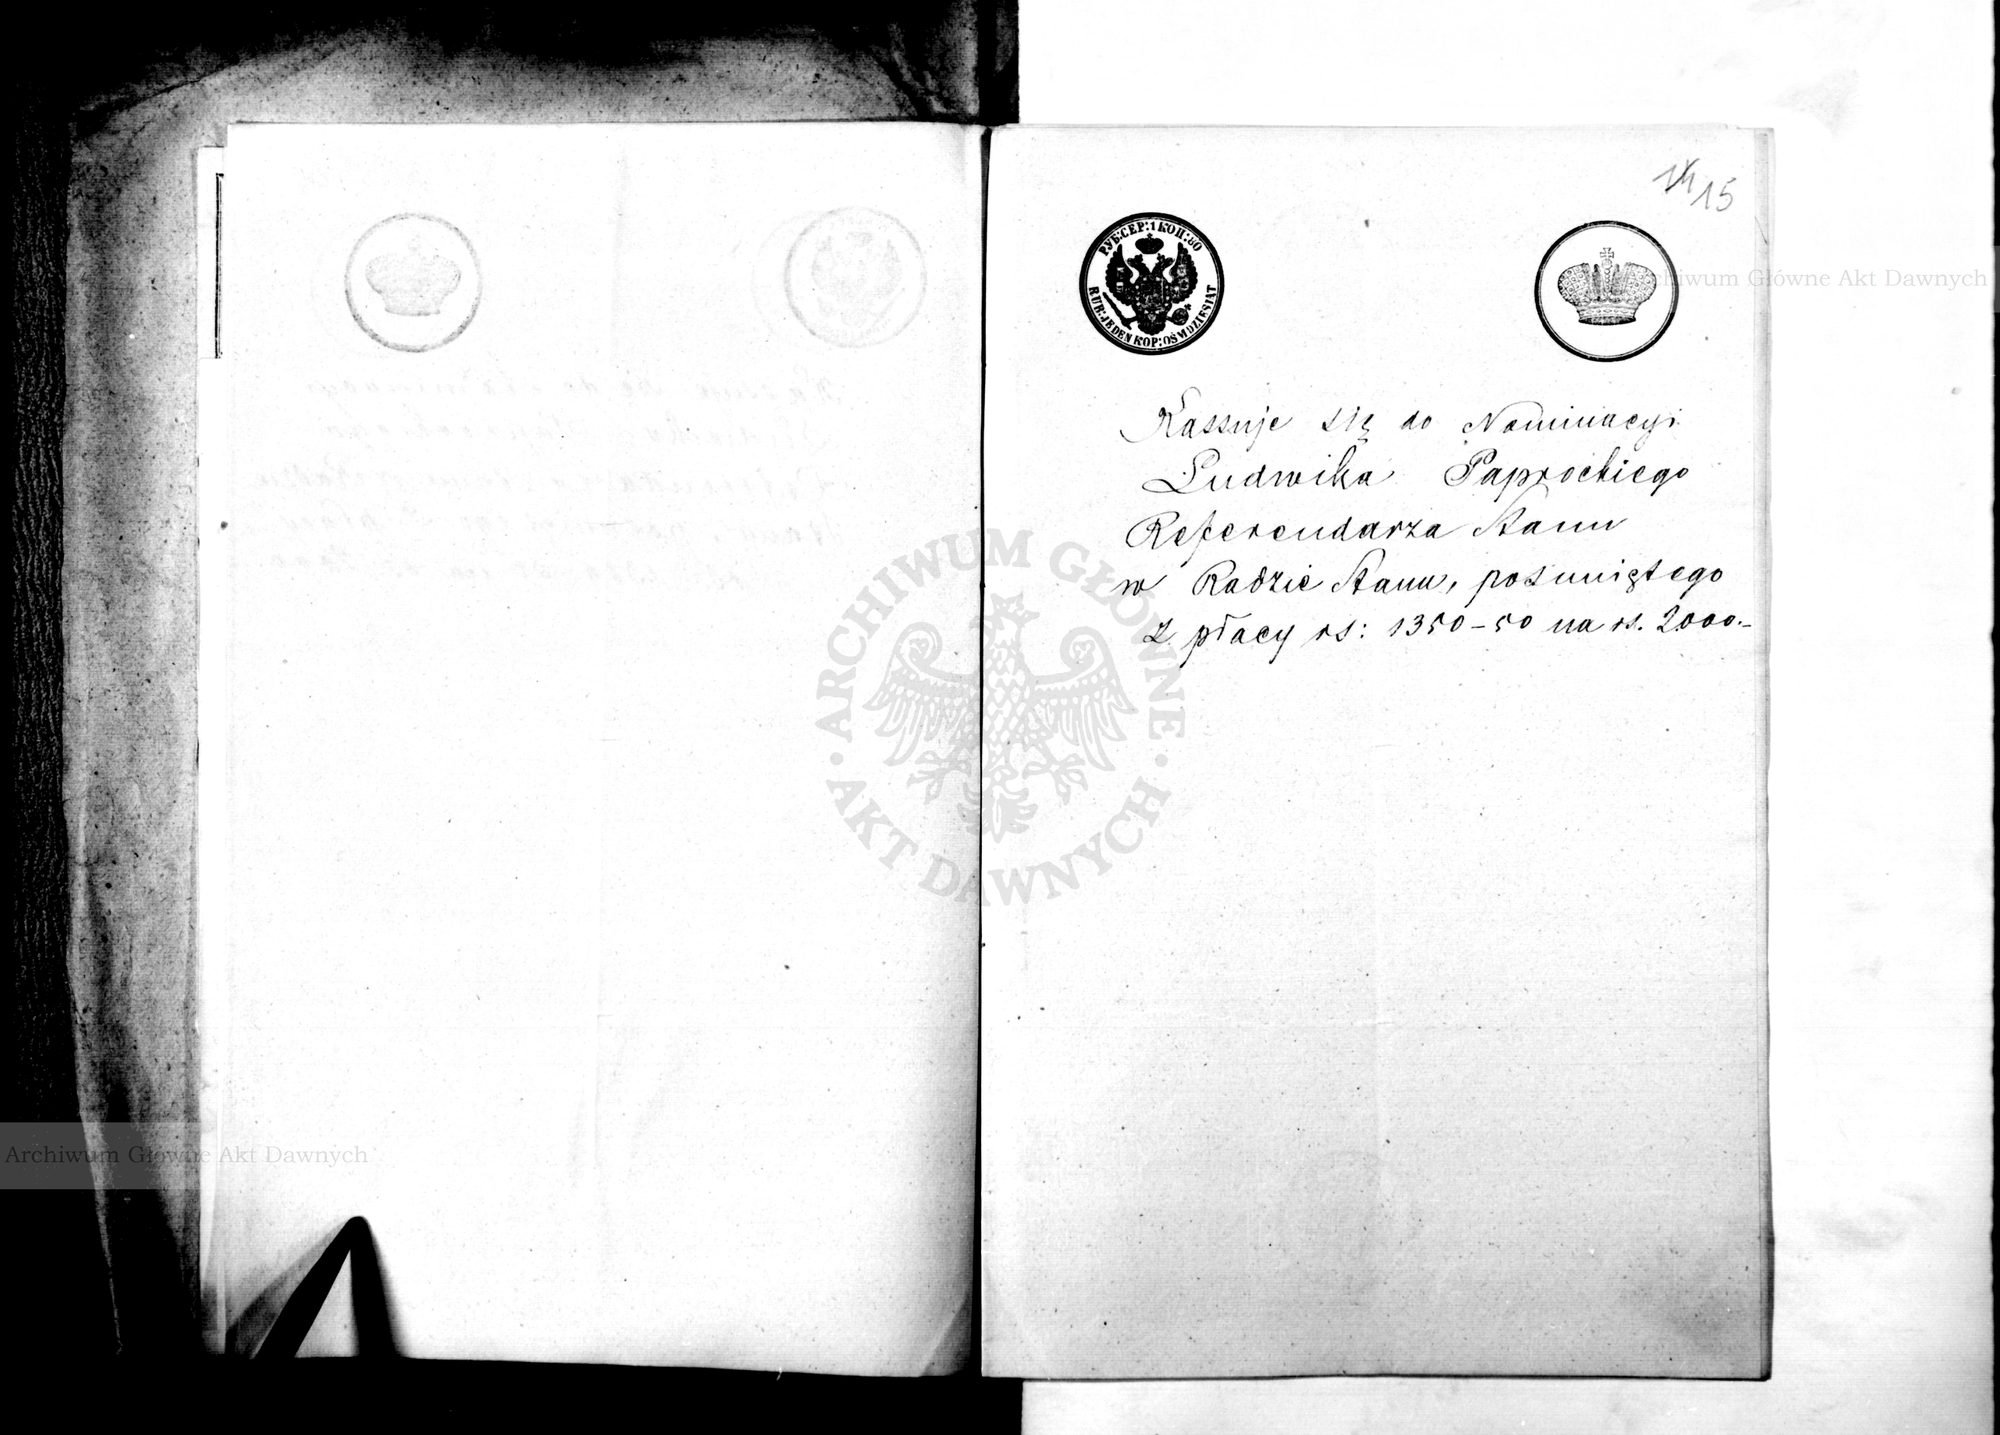 14 15
РУБ:СЕР:1 КОП:80
RUB:JEDEN KOP:OŚMDZIESIĄT
Kassuje się do Nominacyi
Ludwika Paprockiego
Referendarza Stanu
w Radzie Stanu, posuniętego
z płacy rs: 1350-50 na rs. 2000.-
Archiwum Główne Akt Dawnych
ARCHIWUM GŁÓWNE
AKT DAWNYCH
Archiwum Główne Akt Dawnych